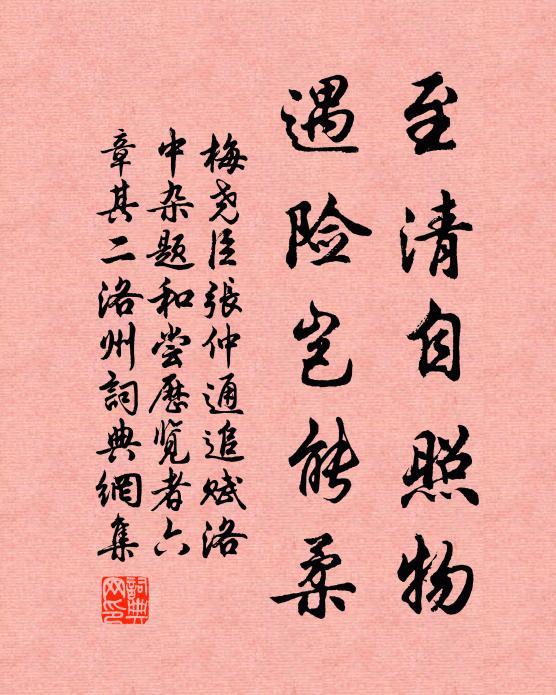 至清自照物
遇险岂能柔
梅尧臣張仲通追赋洛
中杂题和尝歷览者六
章其二洛州詞典網集
詞典網印